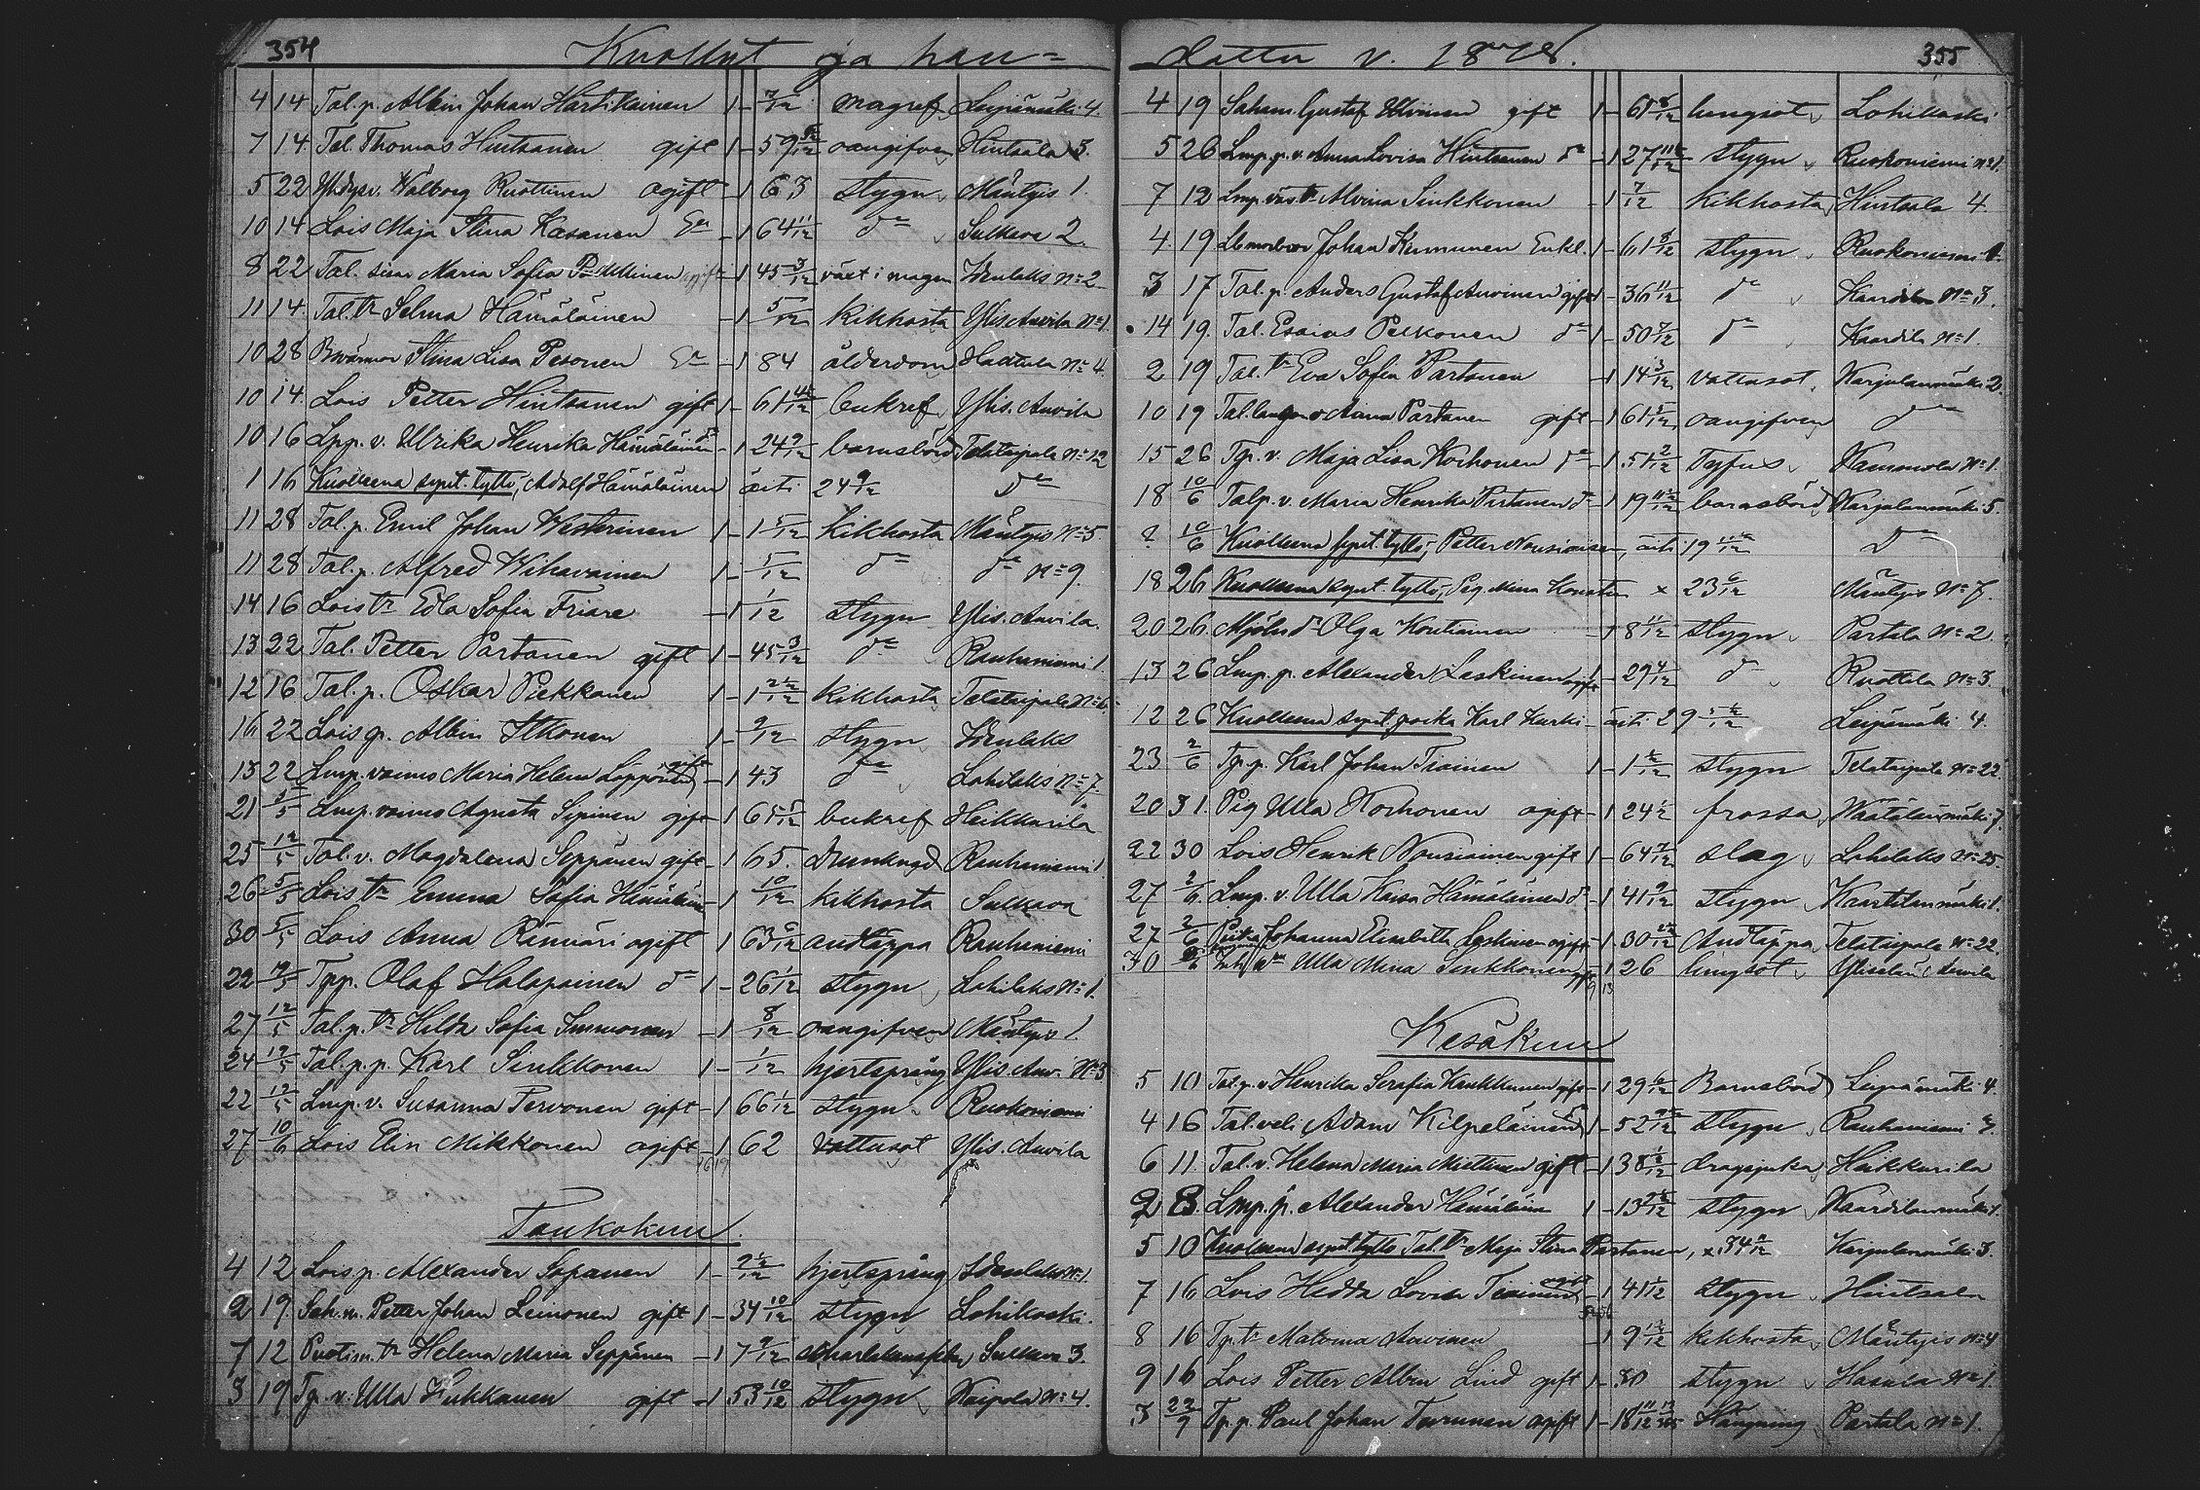 354 Kuollut ja hau=
4 14 Tal. p. Albin Johan Hartikainen 1 - 7/12 magref Leipämäki 4.
7 14 Tal. Thomas Hintsanen gift 1 - 59 oangifven Hintsala 5.
5 22 Walborg Ruottinen ogift - 1 63 stygn Mäntyis 1.
10 14 Lois Maja Stina Kasanen Ea - 1 64 11/12 do Sulkava 2.
8 22 Tal. Maria Sofia - 1 45 3/12 växt i magen No 2
11 14 Tal. tr Selma Hämäläinen - 1 5/12 Kikhosta Ylis. Auvila No 1.
10 28 Stina Lisa Pesonen Ea - 1 84 ålderdom No 4.
10 14 Lois Petter Hintsanen gift 1 - 61 bukref Ylis. Auvila
10 16 Lpp. v. Ulrika Henrika Hämäläinen do - 1 24 9/12 barnsbörd Telataipale No 12
1 16 Kuolleena synt. tyttö, Adolf Hämäläinen äiti 24 9/12 do
11 28 Tal. p. Emil Johan Westerinen 1 - 1 5/12 Kikhosta Mäntyis No 5.
11 28 Tal. p. Alfred Wihavainen 1 - 5/12 do do No 9.
14 16 Lois tr Edla Sofia Friare - 1 1/12 stygn Ylis. Auvila.
13 22 Tal. Petter Partanen gift 1 - 45 3/12 do Rauhaniemi 1
12 16 Tal. p. Oskar Piekkanen 1 - 1 2½/12 Kikhosta Telataipale No 6.
16 22 Lois p. Albin Itkonen 1 - 9/12 stygn
13 22 Lmp. vaimo Maria Helena Lopponen - 1 43 do Lohilaks No 7.
21 Lmp. vaimo Agneta Sipinen gift - 1 65 bukref Heikkurila
25 12/5 Tal. v. Magdalena Seppänen gift - 1 65. Drunknad Rauhaniemi 1
26 5/5 Lois tr Emma Sofia Hämäläinen - 1 10/12 kikhosta Sulkava
30 5/5 Lois Anna ogift 1 63 andtäppa Rauhaniemi
22 Tpp. Olaf Halopainen do 1 - 26 1/12 stygn Lohilaks No 1.
27 12/5 Tal. p. tr Hilda Sofia Immonen - 1 8/12 oangifven Mäntyis 1.
24 19/5 Tal. p. p. Karl Sinkkonen 1 - 1/12 hjertsprång Ylis. Auv. No 3
22 12/5 Lmp. v. Susanna Parvonen gift - 1 66 1/12 stygn Ruokoniemi
27 10/6 Lois Elin Mikkonen ogift - 1 62 Vattusot Ylis. Auvila
16 19
Toukokuu.
4 12 Lois p. Alexander Sopanen 1 - hjertsprång No 1.
2 19 Sah. m. Petter Johan Leinonen gift 1 - 34 10/12 stygn Lohikoski.
7 12 Helena Maria Seppänen - 1 7 9/12 Sulkava 3.
3 19 Tp. v. Ulla Kukkanen gift - 1 53 10/12 stygn Kaipola No 4.
dattu v. 1878. 355
4 19 Sahani Gustaf gift 1 - 61 8/12 lungsot Lohikoski
5 26 Lmp. p. v. Anna Lovisa Hintsanen do - 1 27 stygn Ruokoniemi No 1.
7 12 Lmp. tr Alvina Sinkkonen - 1 7/12 kikhosta Hintsala 4.
4 19 Johan Kinnunen Enkl. 1 - 61 8/12 stygn Ruokoniemi
3 17 Tal. p. Anders Gustaf Auvinen gift 1 - 36 11/12 do Kaardila No 3.
14 19. Tal. Esaias Pelkonen do 1 - 50 7/12 do Kaardila No 1.
2 19 Tal. tr Eva Sofia Partanen - 1 14 3/12 Vattusot. Karjulanmäki 2.
10 19 Anna Partanen gift - 1 61 oangifven do
15 26 Tp. v. Maja Lisa Korhonen do - 1 51 2/12 Tyfus Kammola No 1.
18 10/6 Talp. v. Maria Henrika Partanen do - 1 19 barnsbörd Karjulanmäki 5.
? 10/6 Kuolleena synt. tyttö, Petter Nousiainen, äiti 19 do
18 26 Kuolleena synt. tyttö, Pig. Mina x 23 Mäntyis No 7.
20 26. Mjöln. dr Olga - 1 8 stygn Partala No 2.
13 26 Lmp. p. Alexander Laskinen ogift 1 - 29 4/12 do Ruottila No 3.
12 26 Kuolleena synt. poika Karl Kurki - äiti 29 Leipämäki 4.
23 2/6 Tp. p. Karl Johan Tiainen 1 - 1 stygn Telataipale No 22.
20 31. Pig Ulla Korhonen ogift - 1 24 frossa Väätälänmäki 7.
22 30 Lois Henrik Nousiainen gift 1 - 64 7/12 slag Lohilaks No 25.
27 2/6 Lmp. v. Ulla Kaisa Hämäläinen do - 1 41 9/12 stygn Kaartilanmäki 1.
27 2/6 Piika Johanna Elisabeth Laskinen ogift - 1 30 Andtäppa Telataipale No 22.
30 Ulla Mina Sinkkonen - 1 26 lungsot Auvila
9 13
Kesäkuu
5 10 Tal. p. v. Henrika Serafia Kaukkanen gift - 1 29 Barnsbörd Leipämäki 4.
4 16 Tal. veli Adam Kilpeläinen 1 - 52 stygn Rauhaniemi
6 11. Tal. v. Helena Maria Miettinen gift - 1 38 dragsjuka Heikkurila
2 8. Lmp. p. Alexander Hämäläinen 1 - 13 stygn Kaardilanmäki 1.
5 10 Kuolleena synt. tyttö Tal. tr Maja Stina Partanen, x 34 Karjulanmäki 3.
7 16 Lois Hedda Lovisa Tiainen ogift - 1 41 stygn Hintsala
8 16 Tp. tr Matvina Auvinen - 1 9 kikhosta Mäntyis No 4
9 16 Lois Petter Albin Lind gift 1 - 30 stygn No 1.
3 22/9 Tp. p. Paul Johan Turunen ogift 1 - 18 Hängning Partala No 1.